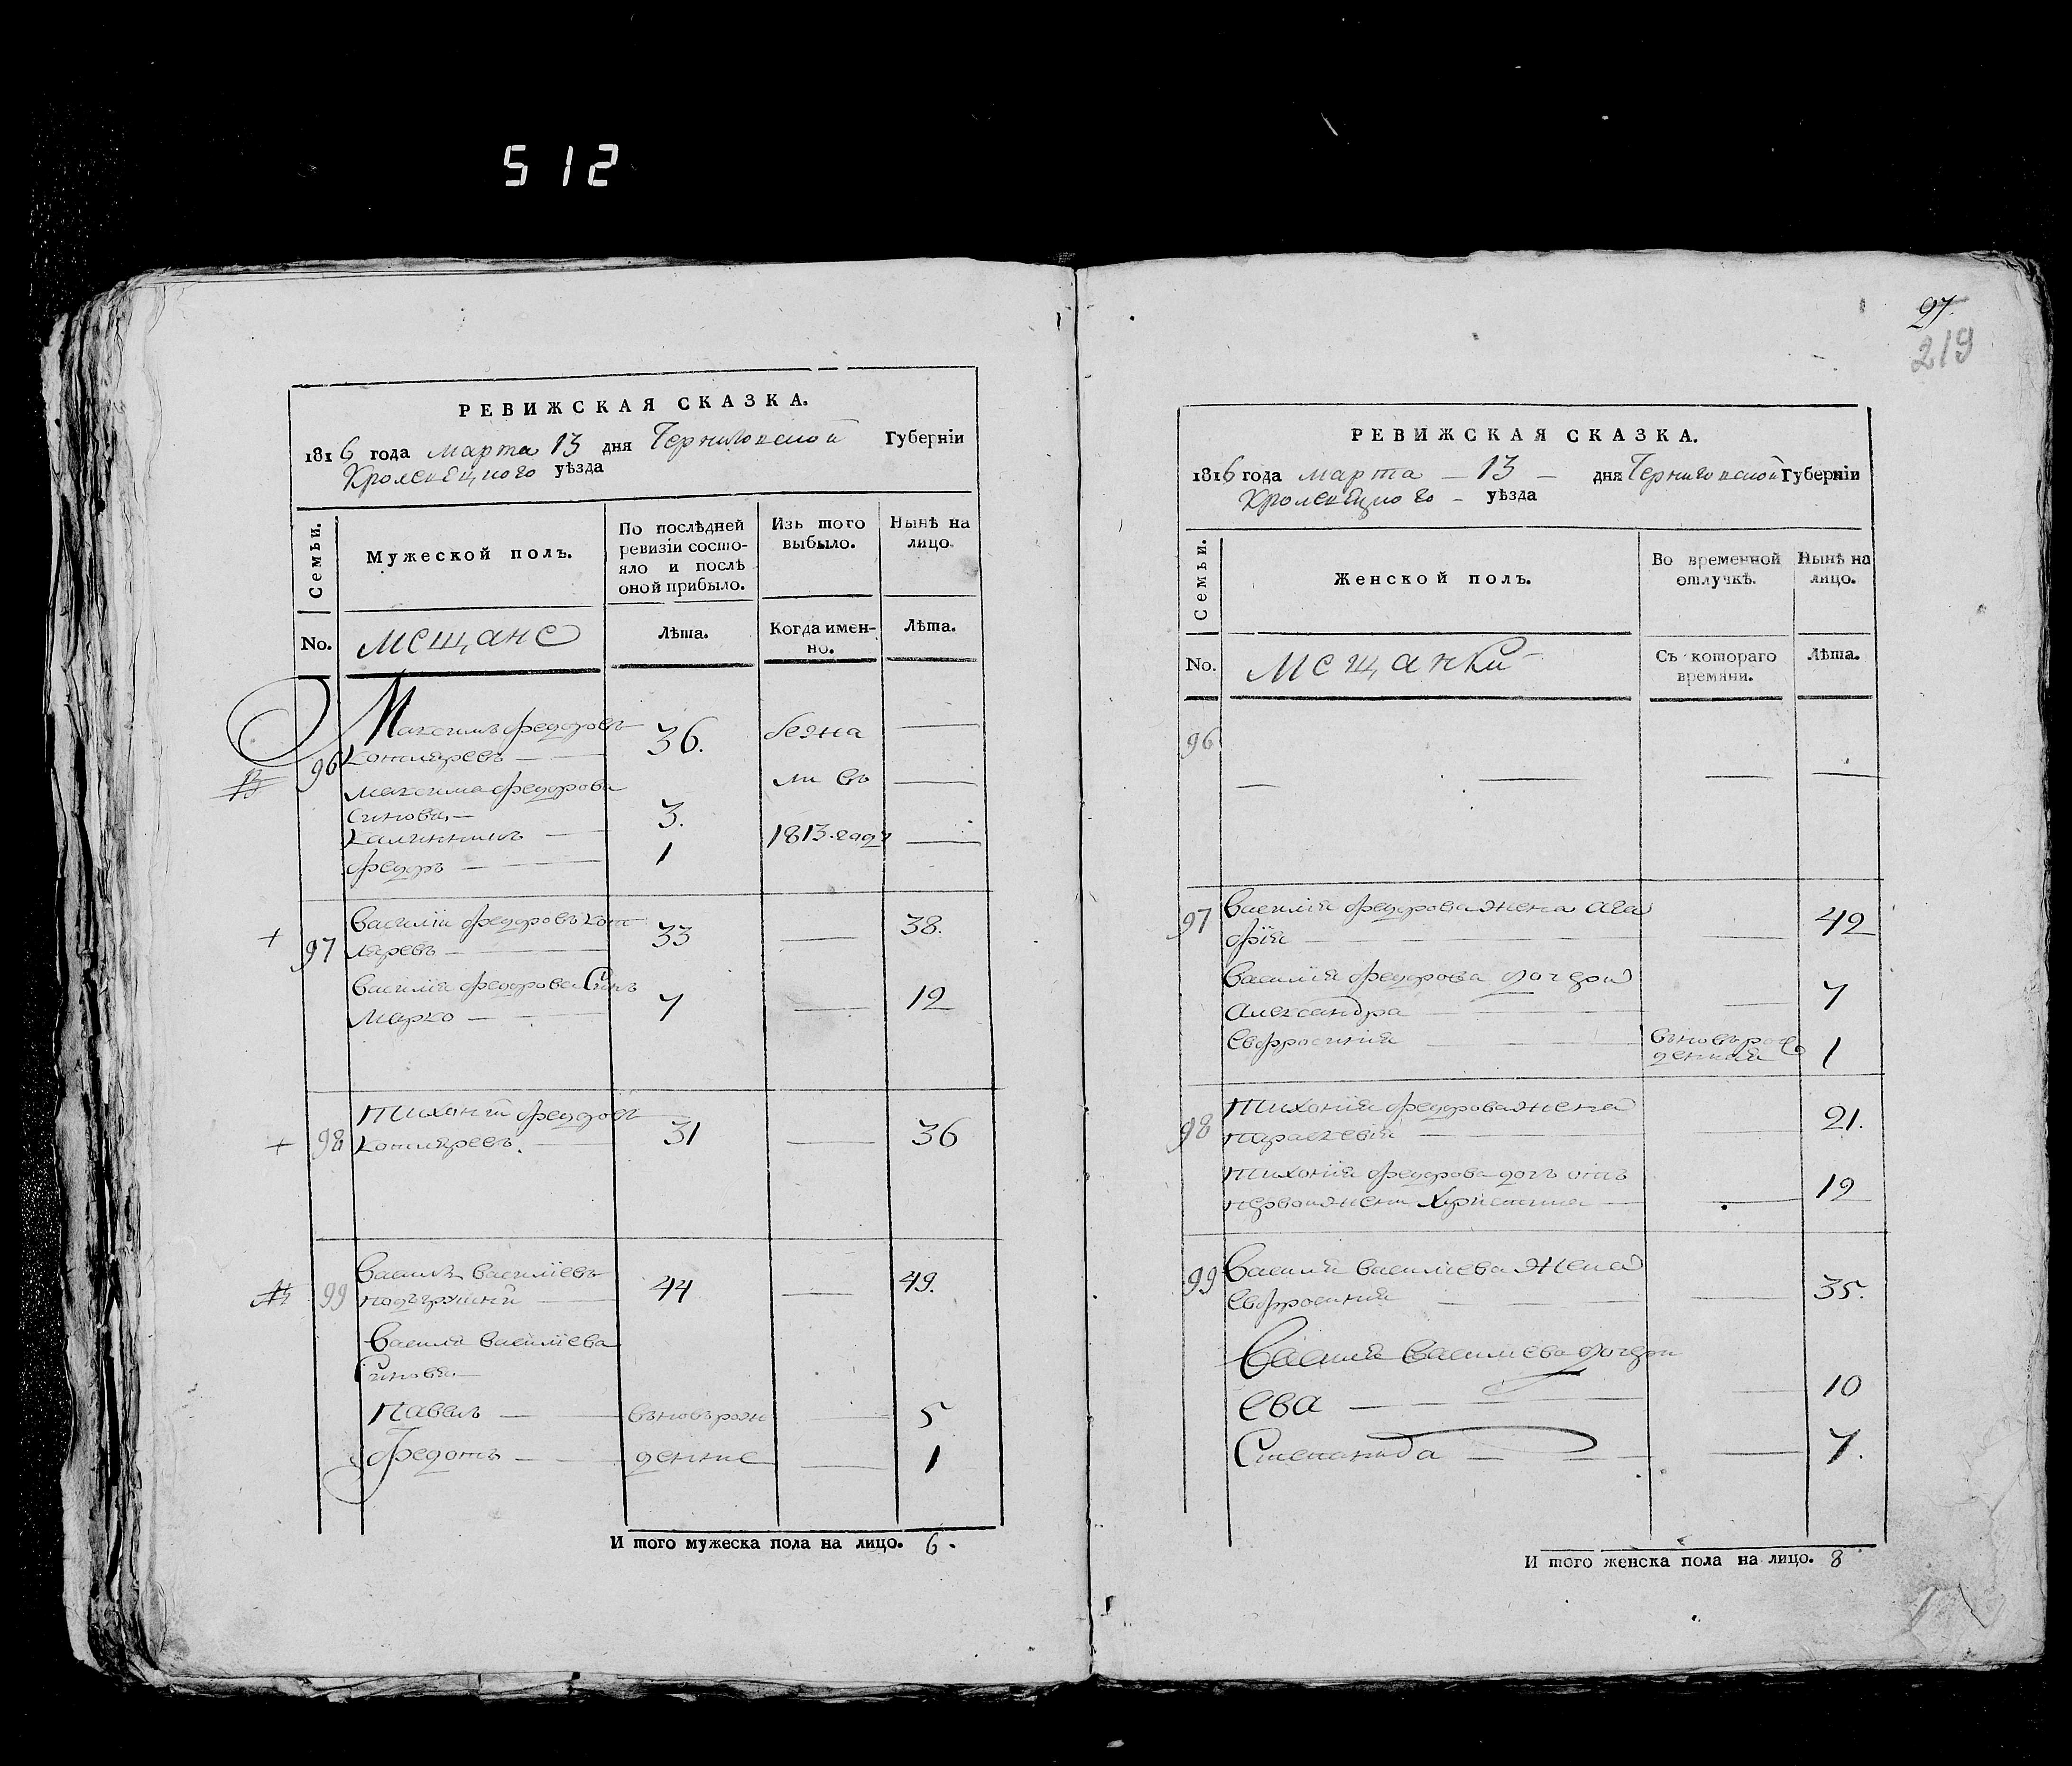 512
РЕВИЖСКАЯ СКАЗКА.
1816 года марта 13 дня Черниговской Губерніи
Кролевецкого уѣзда
Семьи.
Мужеской полъ.
По послѣдней ревизіи состо-
яло и послѣ
оной прибыло.
Изъ того
выбыло.
Нынѣ на
лицо.
No.
мещане
Лѣта.
Когда имен-
но.
Лѣта.
96
Максимъ Федоровъ
Котляревъ
36.
бежа
ли въ
1813. году
Максима Федорова
Синовя
3.
Федоръ
1
97
Василій Федоровъ Кот
ляревъ
33
38.
Василія Федорова Синъ
Марко
7
12
98
Тихоній Федоровъ
Котляревъ.
31
36
99
Василь Василіевъ
44
49.
Василя Василіева
Синовя
Павелъ
вьновьрож
5
Федотъ
денніе
1
И того мужеска пола на лицо. 6.
97.
219
РЕВИЖСКАЯ СКАЗКА.
1816 года марта 13 дня Черниговской Губерніи
Кролевецкого уѣзда
Семьи.
Женской полъ.
Во временной
отлучкѣ.
Нынѣ на
лицо.
No.
мещанки
Съ котораго
времяни.
Лѣта.
96
97
Василія Федорова жена Ага
фія
42
Василія Федорова дочери
Александра
7
Евфросинія
вьновьрож
денная
1
98
Тихонія Федорова жена
Параскевія
21.
Тихонія Федорова дочъ отъ
первои жени Христина
12
99
Василія Василіева Жена
Евфросинія
35.
Василія Василіева дочери
Ева
10
Степанида
7.
И того женска пола на лицо. 8